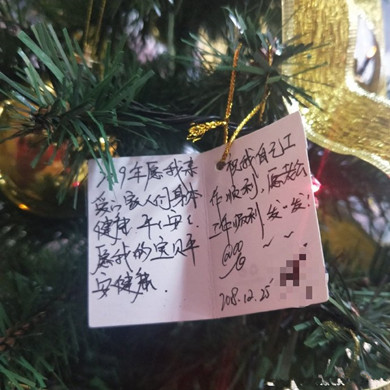 19年愿我亲
爱的家人们身体
健康 平平安安
愿我的宝贝平
安健康.
祝我自己工
作顺利,愿老公
工作顺利 发~发!
2018.12.25